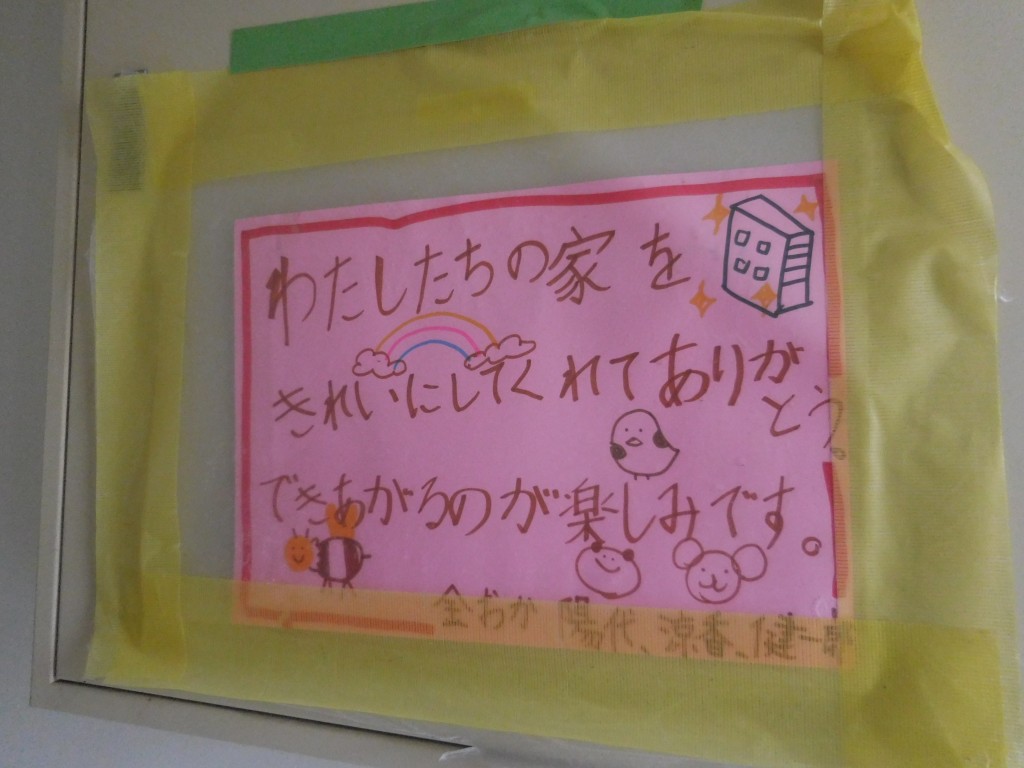 わたしたちの家を
きれいにしてくれてありが
とう。
できあがるのが楽しみです。
陽代、涼香、健一郎